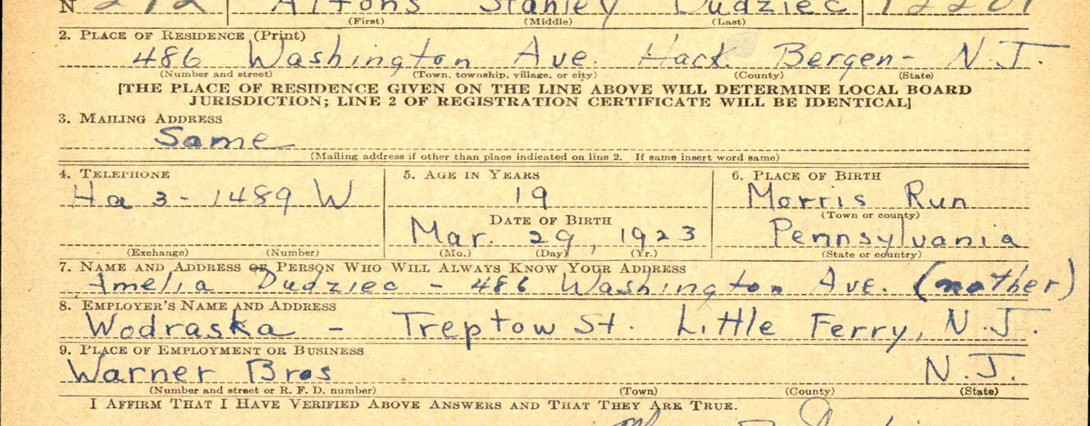 N 272 Alfons Stanley Dudziec
(First) (Middle) (Last)
2. PLACE OF RESIDENCE (Print)
486 Washington Ave. Hack. Bergen- N.J.
(Number and street) (Town, township, village, or city) (County) (State)
[THE PLACE OF RESIDENCE GIVEN ON THE LINE ABOVE WILL DETERMINE LOCAL BOARD
JURISDICTION; LINE 2 OF REGISTRATION CERTIFICATE WILL BE IDENTICAL]
3. MAILING ADDRESS
Same
(Mailing address if other than place indicated on line 2. If same insert word same)
4. TELEPHONE
Ha 3 - 1489 W
(Exchange) (Number)
5. AGE IN YEARS
19
DATE OF BIRTH
Mar. 29, 1923
(Mo.) (Day) (Yr.)
6. PLACE OF BIRTH
Morris Run
(Town or county)
Pennsylvania
(State or country)
7. NAME AND ADDRESS OF PERSON WHO WILL ALWAYS KNOW YOUR ADDRESS
Amelia Dudziec - 486 Washington Ave. (mother)
8. EMPLOYER'S NAME AND ADDRESS
Wodraska - Treptow St. Little Ferry, N.J.
9. PLACE OF EMPLOYMENT OR BUSINESS
Warner Bros N.J.
(Number and street or R. F. D. number) (Town) (County) (State)
I AFFIRM THAT I HAVE VERIFIED ABOVE ANSWERS AND THAT THEY ARE TRUE.